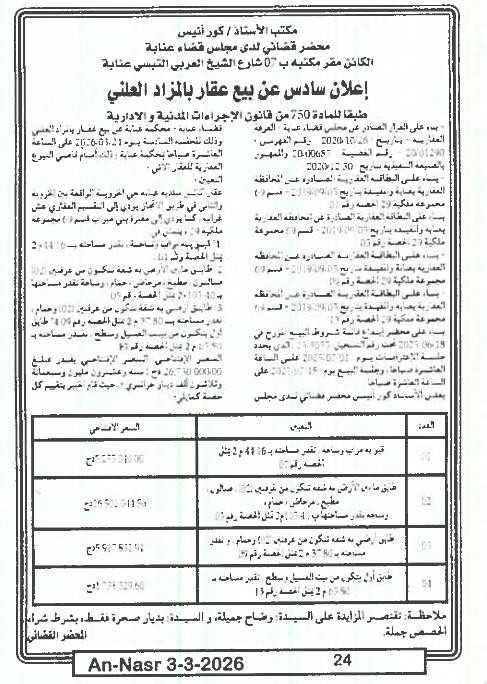 مكتب الأستاذ/ كور أنيس
محضر قضائي لدى مجلس قضاء عنابة
الكائن مقر مكتبه ب 07 شارع الشيخ العربي التبسي عنابة
إعلان سادس عن بيع عقار بالمزاد العلني
طبقا للمادة 750 من قانون الإجراءات المدنية والادارية
- بناء على القرار الصادر عن مجلس قضاء عنابة - الغرفة
العقارية - بتاريخ 2020/10/26 - رقم الفهرس
20/01290 - رقم القضية 20/00685 والممهور
بالصيغة التنفيذية بتاريخ 2020/12/30
- بناء على البطاقة العقارية الصادرة عن المحافظة
العقارية بعنابة بتاريخ 2019/09/05 - قسم 69
مجموعة ملكية 29 الحصة رقم
- بناء على البطاقة العقارية الصادرة عن المحافظة العقارية
بعنابة بتاريخ 2019/09/05 - قسم 69 مجموعة
ملكية 29 الحصة رقم 05
- بناء على البطاقة العقارية الصادرة عن المحافظة
العقارية بعنابة بتاريخ 2019/09/05 - قسم 69
مجموعة ملكية 29 الحصة رقم
- بناء على البطاقة العقارية الصادرة عن المحافظة
العقارية بعنابة بتاريخ 2019/09/05 - قسم 69
مجموعة ملكية 29 الحصة رقم
بناء على محضر إيداع قائمة شروط البيع المؤرخ في
2025/06/18 تحت رقم التسجيل الذي يحدد
جلسة الاعتراضات يوم 2025/07/01 على الساعة
العاشرة صباحا، وجلسة البيع يوم 2025/07/15 على
الساعة العاشرة صباحا
يعلن الأستاذ كور أنيس محضر قضائي لدى مجلس
قضاء عنابة - محكمة عنابة عن بيع عقار بالمزاد العلني
وذلك للجلسة السادسة يوم 2026/03/24 على الساعة
العاشرة صباحا بمحكمة عنابة وذلك أمام قاضي البيوع
العقارية للعقار الآتي:
التعيين:
والثاني في طريق الانجاز يؤدي إلى التقسيم العقاري عش
غراب، كما يؤدي إلى مقبرة بني محراب قسم 69 مجموعة
ملكية 29، يتمثل في
1/ قبو به مرآب وساحة، تقدر مساحته بـ 44.16 م2
تمثل الحصة رقم 01
2/ طابق مابين الأرض به شقة تتكون من غرفتين (02)
صالون، مطبخ، مرحاض، حمام، وساحة تقدر مساحتها
بـ 105.40 م2 تمثل الحصة رقم 05
3/ طابق أرضي به شقة تتكون من غرفتين (02) وحمام،
تقدر مساحته بـ 37.80 م2 تمثل الحصة رقم 09، 4/ طابق
أول يتكون من بيت الغسيل وسطح، تقدر مساحته بـ
65.80 م2 تمثل الحصة رقم
السعر الإفتتاحي: السعر الإفتتاحي يقدر بمبلغ
26.730.000.00 دج (ستة وعشرون مليون وسبعمائة
وثلاثون ألف دينار جزائري)، حيث قام الخبير بتقييم كل
حصة كمايلي:
العدد التعيين السعر الافتتاحي
01 قبو به مرآب وساحة، تقدر مساحته بـ 44.16 م2 تمثل الحصة رقم 01 دج
02 طابق مابين الأرض به شقة تتكون من غرفتين (02)، صالون، مطبخ، مرحاض، حمام، وساحة تقدر مساحتها بـ 105.40 م2 تمثل الحصة رقم 05 دج
03 طابق أرضي به شقة تتكون من غرفتين (02) وحمام، وتقدر مساحته بـ 37.80 م2 تمثل الحصة رقم 09 دج
04 طابق أول يتكون من بيت الغسيل وسطح، تقدر مساحته بـ 65.80 م2 تمثل الحصة رقم 13 دج
ملاحظة: تقتصر المزايدة على السيدة: وضاح جميلة، و السيدة: بديار صحرة فقط، بشرط شراء
الحصص جملة.
المحضر القضائي
An-Nasr 3-3-2026
24